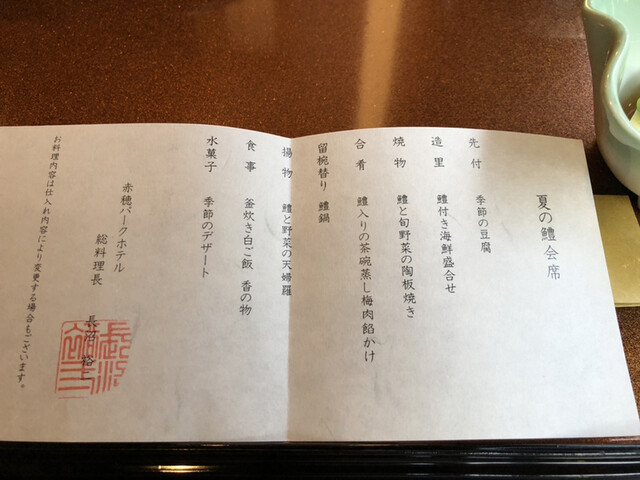 夏の鱧会席
先付 季節の豆腐
造里 鱧付き海鮮盛合せ
焼物 鱧と旬野菜の陶板焼き
合肴 鱧入りの茶碗蒸し梅肉餡かけ
留椀替り 鱧鍋
揚物 鱧と野菜の天婦羅
食事 釜炊き白ご飯 香の物
水菓子 季節のデザート
赤穂パークホテル
総料理長 長沼 裕
お料理内容は仕入れ内容により変更する場合もございます。